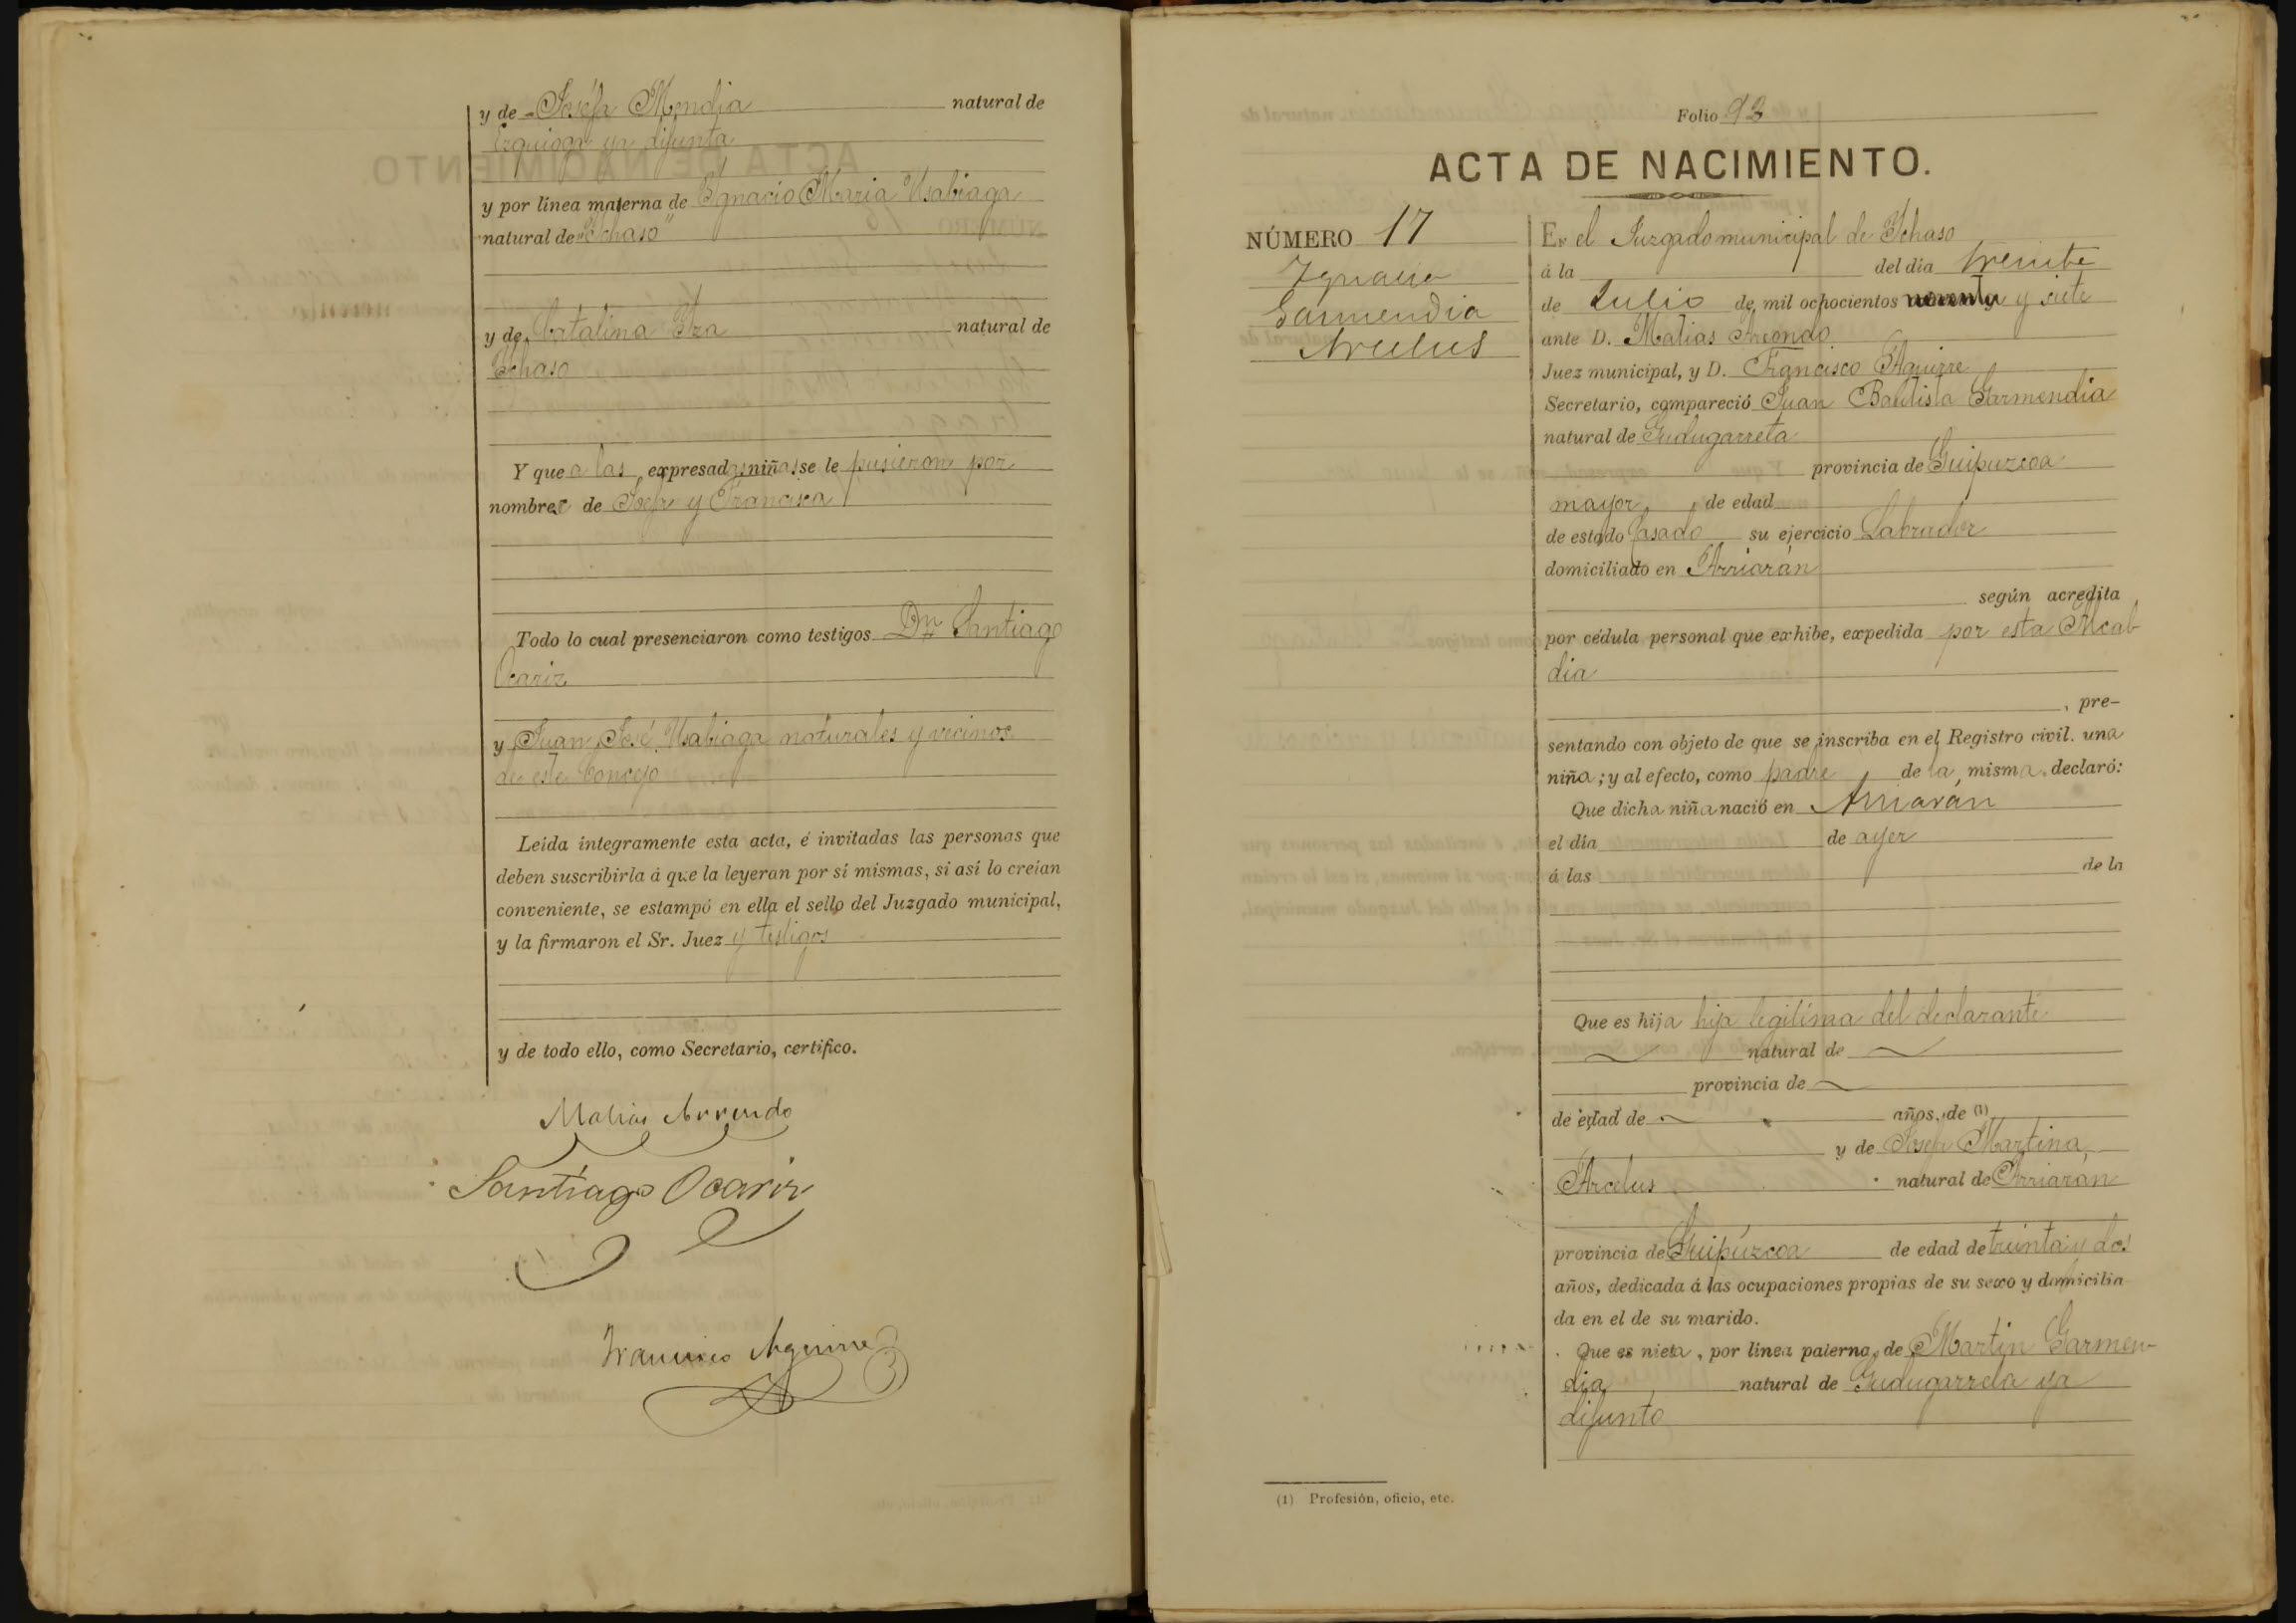 y de Josefa Mendia natural de
Ezquioga ya difunta
y por línea materna de Ignacio Maria Usabiaga
natural de "Ichaso"
y de Catalina Iza natural de
Ichaso
Y que a las expresadas niñas se le pusieron por
nombres de Josefa y Francisca
Todo lo cual presenciaron como testigos Dn Santiago
Ocariz
y Juan José Usabiaga naturales y vecinos
de este Concejo
Leída íntegramente esta acta, é invitadas las personas que
deben suscribirla á que la leyeran por sí mismas, si así lo creían
conveniente, se estampó en ella el sello del Juzgado municipal,
y la firmaron el Sr. Juez y testigos
y de todo ello, como Secretario, certifico.
Matias Arrondo
Santiago Ocariz
Francisco Aguirre
Folio 92
ACTA DE NACIMIENTO.
NÚMERO 17
Ignacia
Garmendia
Arcelus
En el Juzgado municipal de Ichaso
á la del día treinta
de Julio de mil ochocientos noventa y siete
ante D. Matias Arrondo
Juez municipal, y D. Francisco Aguirre
Secretario, compareció Juan Bautista Garmendia
natural de Gudugarreta
provincia de Guipuzcoa
mayor de edad
de estado casado su ejercicio Labrador
domiciliado en Arriarán
según acredita
por cédula personal que exhibe, expedida por esta Alcal-
dia
, pre-
sentando con objeto de que se inscriba en el Registro civil. una
niña; y al efecto, como padre de la misma. declaró:
Que dicha niña nació en Arriarán
el día de ayer
á las de la
Que es hija hija legitima del declarante
natural de
provincia de
de edad de años, de (1)
y de Josefa Martina
Arcelus natural de Arriarán
provincia de Guipúzcoa de edad de treinta y dos
años, dedicada á las ocupaciones propias de su sexo y domicilia-
da en el de su marido.
Que es nieta, por línea paterna, de Martin Garmen-
dia natural de Gudugarreta ya
difunto
(1) Profesión, oficio, etc.